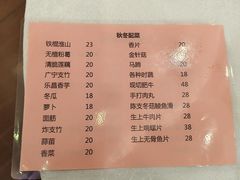 秋冬配菜
铁棍淮山 23
无渣粉葛 20
清脆莲藕 20
广宁支竹 20
乐昌香芋 20
冬瓜 18
萝卜 18
面筋 20
炸支竹 20
蒜苗 20
香菜 20
香片 20
金针菇 20
马蹄 20
各种时蔬 18
现切肥牛 48
手打肉丸 38
陈支冬菇鲮鱼滑 28
生上牛肉片 28
生上𩽾螺片 38
生上无骨鱼片 28